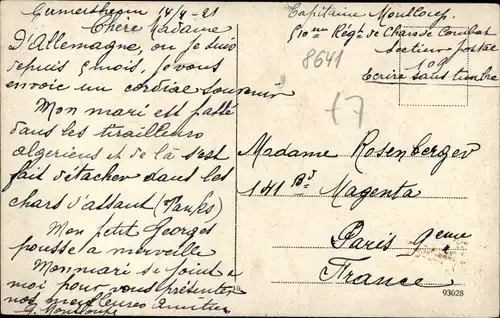 Germersheim 14/4-21
Chère Madame
D'Allemagne, où je suis
depuis 5 mois, je vous
envoie un cordial souvenir
Mon mari est passé
dans les tirailleurs
algeriens et de là s'est
fait détacher dans les
chars d'assaut (Tanks)
Mon petit Georges
pousse a merveille
Mon mari se joint a
moi pour vous présenter
nos meilleures Amitiés
Capitaine
510 Régt de Chars de Combat
Secteur postal
109
Ecrire sans timbre
8641
+7
Madame Rosenberger
141 Bd Magenta
Paris 9eme
France
93028